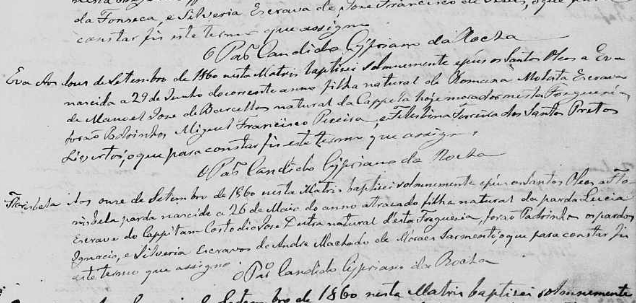 da Fonseca, e Silveria Escrava de Jose Francisco de
constar fis este termo que assigno
O Pe. Candido Cypriano da Rocha
Eva Aos onse de Setembro de 1860 nesta Matris baptisei solennemente e pús os Santos Oleos a Eva
nascida a 29 de Junho do corrente anno filha natural de Romana Mulata Escrava
de Manoel Jose de Barcellos natural da Cappela hoje morador nesta Freguesia
forão Padrinhos, Miguel Francisco Pereira, e Felisbina dos Santos Pretos
Libertos, do que para constar fis este termo que assigno
O Pe. Candido Cypriano da Rocha
Aos onse de Setembro de 1860 nesta Matris baptisei solennemente e pús os Santos Oleos a
parda nascida a 26 de Maio do anno atrazado filha natural da parda
Escrava do Cappitam Jose Dutra natural desta Freguesia, forão Padrinhos os pardos
Ignacio, e Silveria Escravos de Andre Machado de Moraes Sarmento, do que para constar fis
este termo que assigno O Pe. Candido Cypriano da Rocha
Setembro de 1860 nesta Matris baptisei solennemente